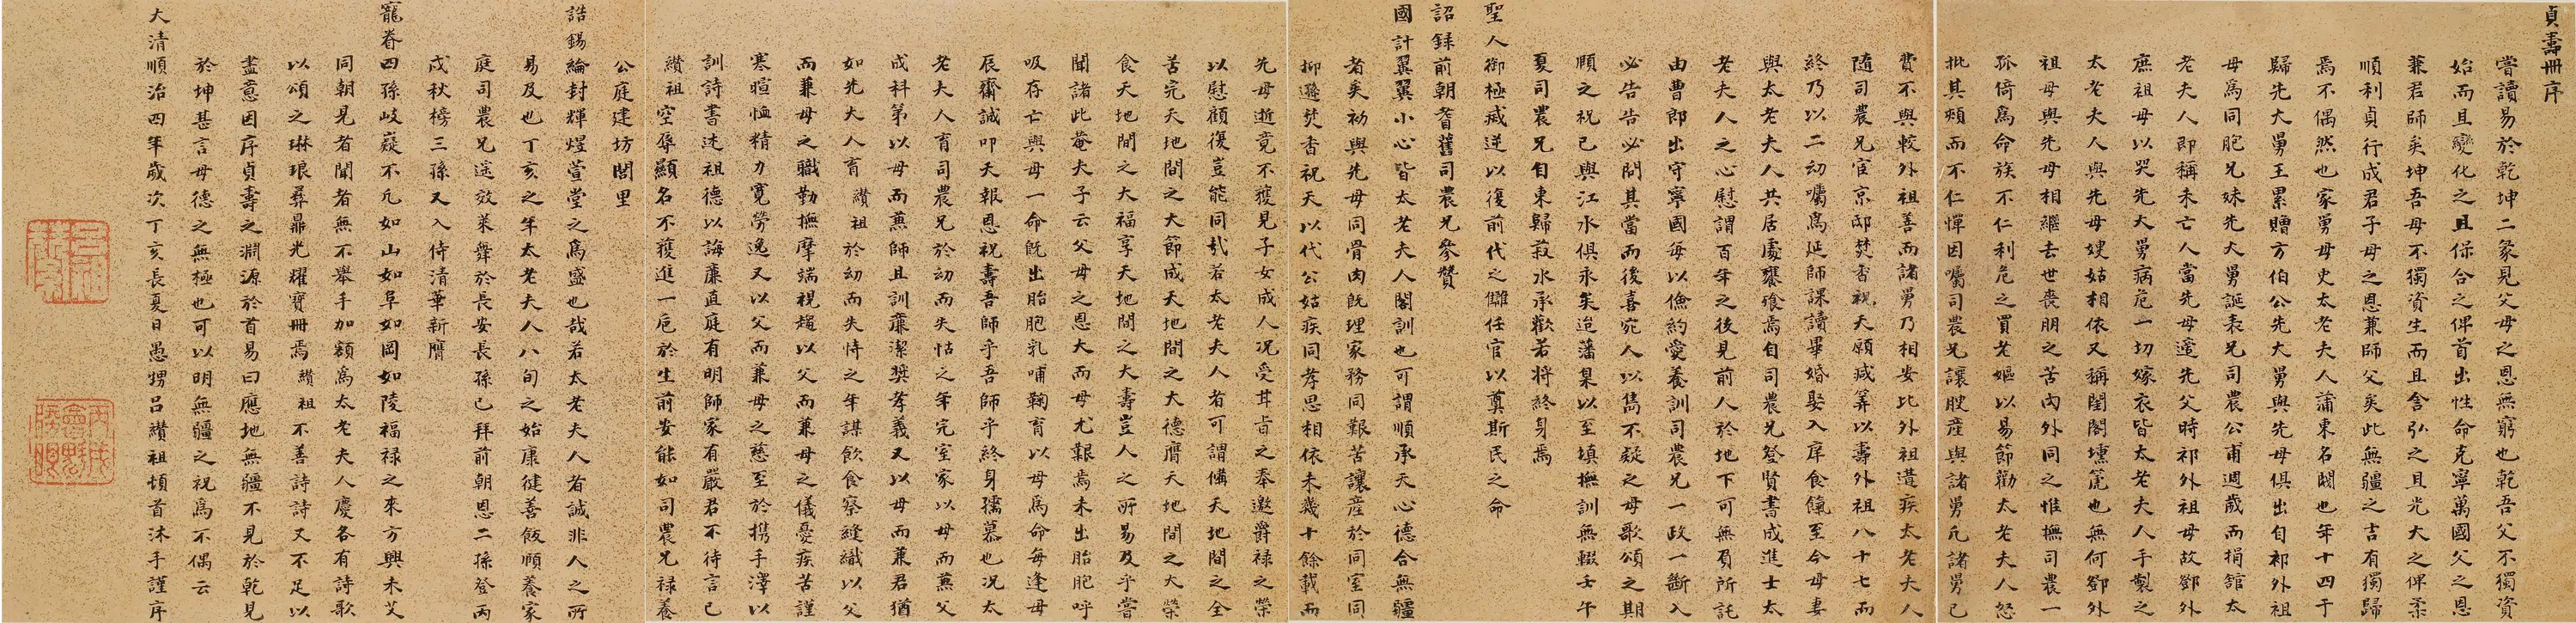 貞壽冊序
嘗讀易於乾坤二彖見父母之恩無窮也乾吾父不獨資
始而且變化之且保合之俾首出性命克寧萬國父之恩
兼君師矣坤吾母不獨資生而且含弘之且光大之俾柔
順利貞行成君子母之恩兼師父矣此無疆之吉有獨歸
焉不偶然也家舅母史太老夫人蒲東名閥也年十四于
歸先大舅王累贈方伯公先大舅與先母俱出自祁外祖
母爲同胞兄妹先大舅誕表兄司農公甫週歲而捐舘太
老夫人即稱未亡人當先母遣先父時祁外祖母故鄧外
庶祖母以哭先大舅病危一切嫁衣皆太老夫人手製之
太老夫人與先母嫂姑相依又稱閨閣壎箎也無何鄧外
祖母與先母相繼去世喪明之苦內外同之惟撫司農一
孤倚爲命族不仁利危之買老嫗以易節勸太老夫人怒
批其頰而不仁憚因囑司農兄讓腴產與諸舅凡諸舅已
費不與較外祖善而諸舅乃相安比外祖遘疾太老夫人
隨司農兄宦京邸焚香祝天願减筭以壽外祖八十七而
終乃以二幼囑爲延師課讀畢婚娶入庠食餼至今母妻
與太老夫人共居處饔飱焉自司農兄登賢書成進士太
老夫人之心慰謂百年之後見前人於地下可無負所託
由曹郎出守寧國每以儉約愛養訓司農兄一政一斷入
必告告必問其當而後喜宛人以雋不疑之母歌頌之期
順之祝已與江水俱永矣迨藩臬以至填撫訓無輟壬午
夏司農兄自東歸菽水承歡若將終身焉
聖人御極㓕逆以復前代之讎任官以奠斯民之命
詔録前朝耆舊司農兄參贊
國計翼翼小心皆太老夫人閣訓也可謂順承天心德合無疆
者矣初與先母同骨肉既理家務同艱苦讓産於同室同
抑遜焚香祝天以代公姑疾同孝思相依未幾十餘載而
先母逝竟不獲見子女成人况受甘旨之奉邀爵禄之榮
以慰顧復豈能同哉若太老夫人者可謂備天地間之全
苦完天地間之大節成天地間之大德膺天地間之大榮
食天地間之大福享天地間之大壽豈人之所易及乎嘗
聞諸此菴夫子云父母之恩大而母尤艱焉未出胎胞呼
吸存亡與母一命既出胎胞乳哺鞠育以母爲命每逢母
辰齋誠叩天報恩祝壽吾師乎吾師乎終身孺慕也况太
老夫人育司農兄於幼而失怙之年完室家以母而兼父
成科第以母而兼師且訓廉潔奬孝義又以母而兼君猶
如先大人育纘祖於幼而失恃之年謀飲食察縫織以父
而兼母之職勤撫摩端視趨以父而兼母之儀憂疾苦謹
寒暄恤精力寬勞逸又以父而兼母之慈至於携手澤以
訓詩書述祖德以誨廉直庭有明師家有嚴君不待言已
纘祖空辱顯名不獲進一巵於生前安能如司農兄禄養
公庭建坊閭里
誥錫綸封輝煌萱堂之爲盛也哉若太老夫人者誠非人之所
易及也丁亥之年太老夫人八旬之始康健善飯順養家
庭司農兄遥效萊舞於長安長孫已拜前朝恩二孫登丙
戌秋榜三孫又入侍清華新膺
寵眷四孫岐嶷不凡如山如阜如岡如陵福禄之來方興未艾
同朝見者聞者無不舉手加額爲太老夫人慶各有詩歌
以頌之琳琅彞鼎光耀寶冊焉纘祖不善詩詩又不足以
盡意因序貞壽之淵源於首易曰應地無疆不見於乾見
於坤甚言母德之無極也可以明無疆之祝爲不偶云
大清順治四年歲次丁亥長夏日愚甥呂纘祖頓首沐手謹序